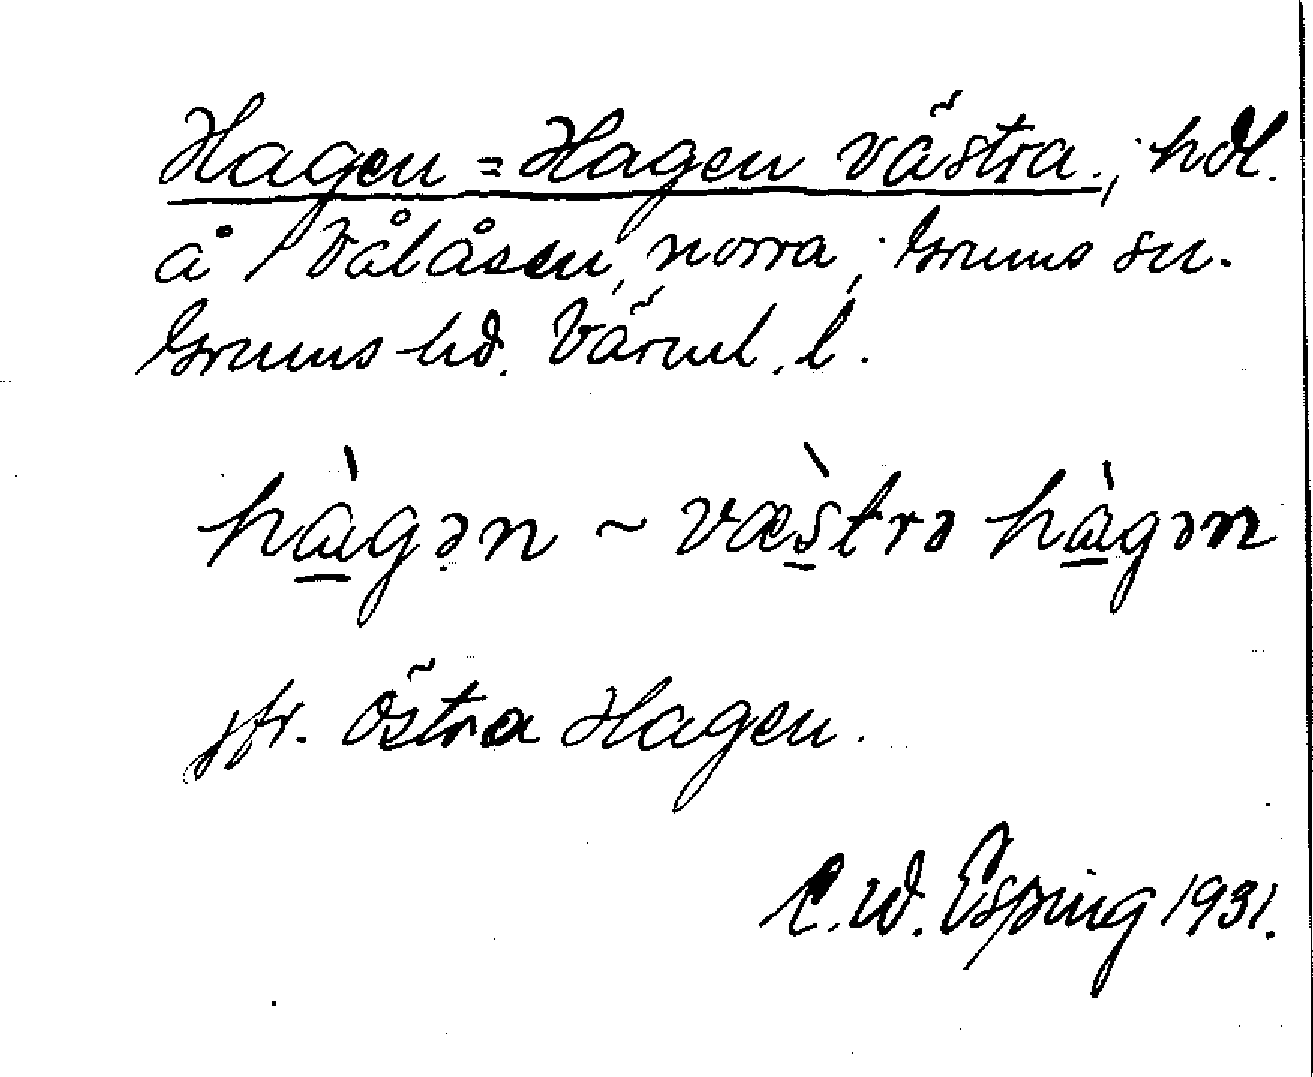 Hagen = Hagen västra.; hdl.
å Vålåsen, norra; Grums sn.
Grums hd. Värml. l.
hàgən ~ væ̀strə hàgən
jfr. Östra Hagen.
C.W. Esping 1931.